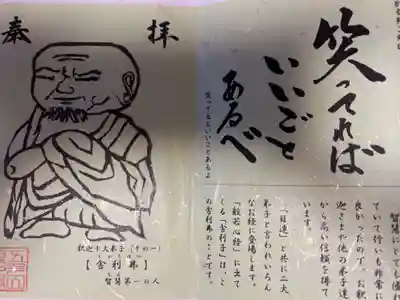 奉拝
釈迦十大弟子(その一)
【舎利弗】
智慧第一の人
笑ってれば
いいごと
あるべ
笑ってるといいことあるよ
智慧にとても優
ていて行いも非常に
良かったので、お釈
迦さまや他の弟子達
から高い信頼を得て
います。
「目連」と共に二大
弟子と言われいろん
なお経に登場します。
「般若心経」に出て
くる「舎利子」は、こ
の舎利弗のことです。